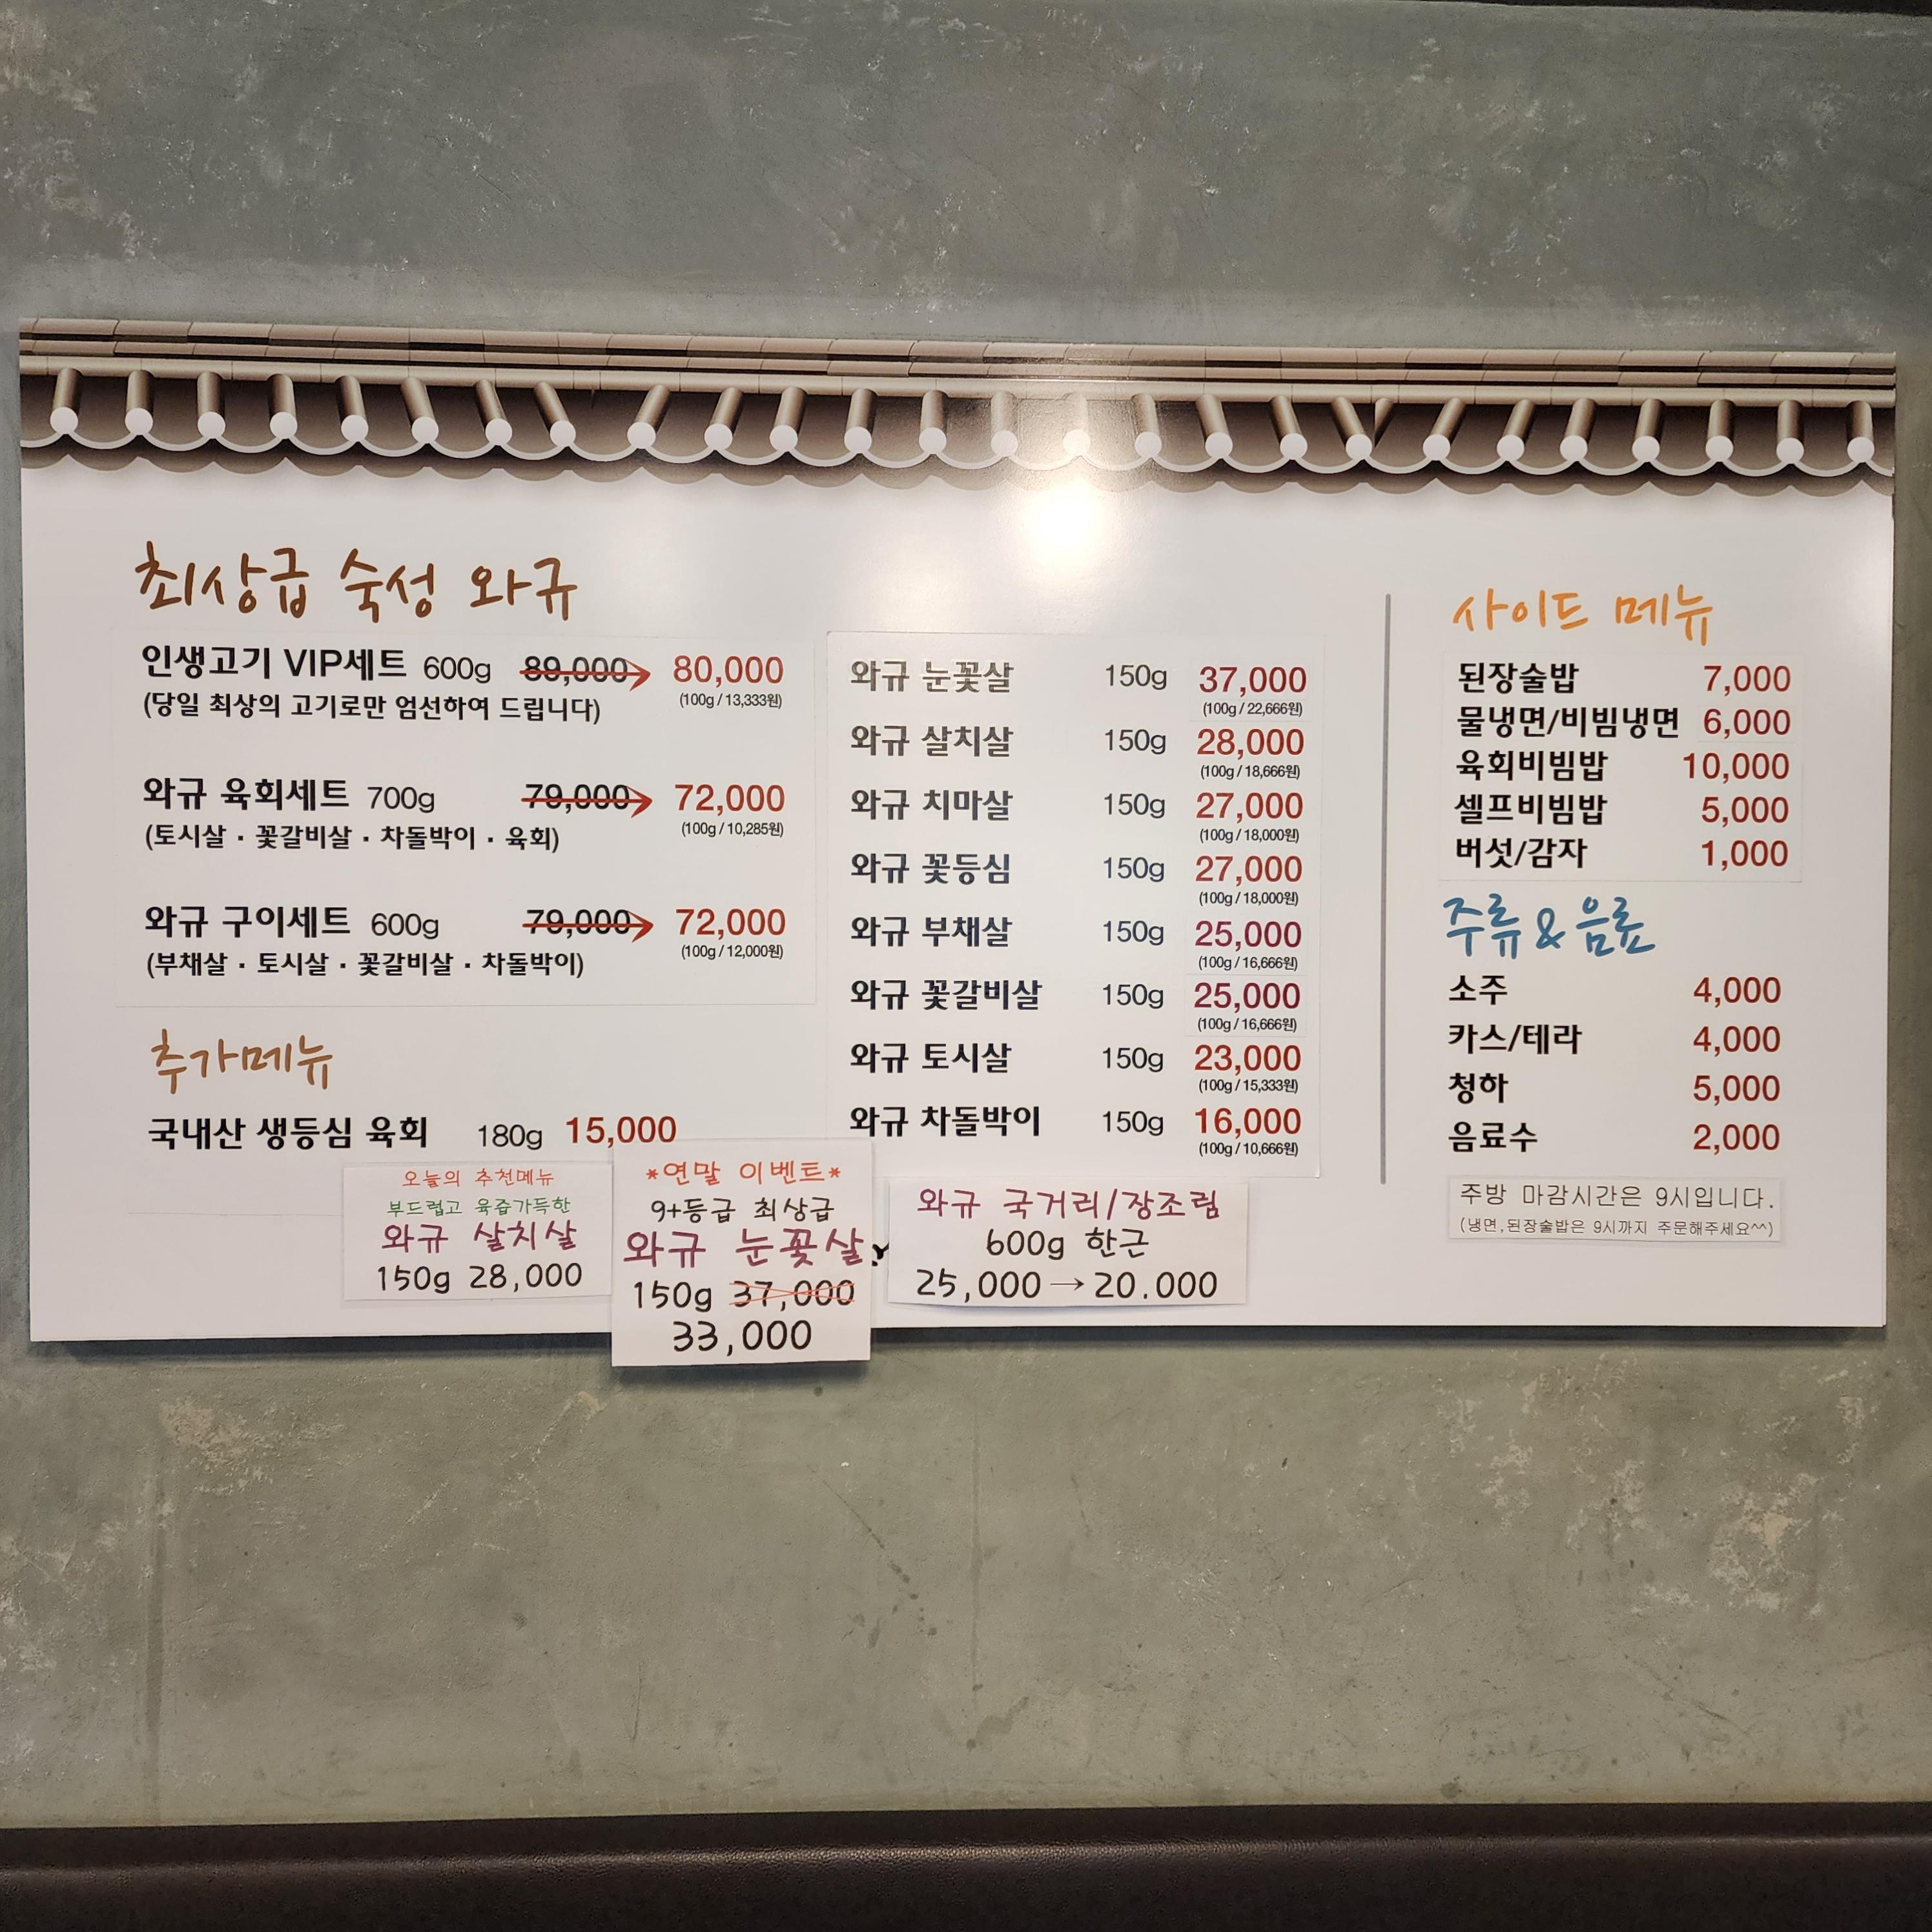 최상급 숙성 와규
인생고기 VIP세트 600g 89,000 → 80,000
(100g / 13,333원)
(당일 최상의 고기로만 엄선하여 드립니다)
와규 육회세트 700g 79,000 → 72,000
(100g / 10,285원)
(토시살 · 꽃갈비살 · 차돌박이 · 육회)
와규 구이세트 600g 79,000 → 72,000
(100g / 12,000원)
(부채살 · 토시살 · 꽃갈비살 · 차돌박이)
추가메뉴
국내산 생등심 육회 180g 15,000
와규 눈꽃살 150g 37,000
(100g / 22,666원)
와규 살치살 150g 28,000
(100g / 18,666원)
와규 치마살 150g 27,000
(100g / 18,000원)
와규 꽃등심 150g 27,000
(100g / 18,000원)
와규 부채살 150g 25,000
(100g / 16,666원)
와규 꽃갈비살 150g 25,000
(100g / 16,666원)
와규 토시살 150g 23,000
(100g / 15,333원)
와규 차돌박이 150g 16,000
(100g / 10,666원)
사이드 메뉴
된장술밥 7,000
물냉면/비빔냉면 6,000
육회비빔밥 10,000
셀프비빔밥 5,000
버섯/감자 1,000
주류 & 음료
소주 4,000
카스/테라 4,000
청하 5,000
음료수 2,000
주방 마감시간은 9시입니다.
(냉면,된장술밥은 9시까지 주문해주세요^^)
오늘의 추천메뉴
부드럽고 육즙가득한
와규 살치살
150g 28,000
*연말 이벤트*
9+등급 최상급
와규 눈꽃살
150g 37,000
33,000
와규 국거리/장조림
600g 한근
25,000 → 20.000